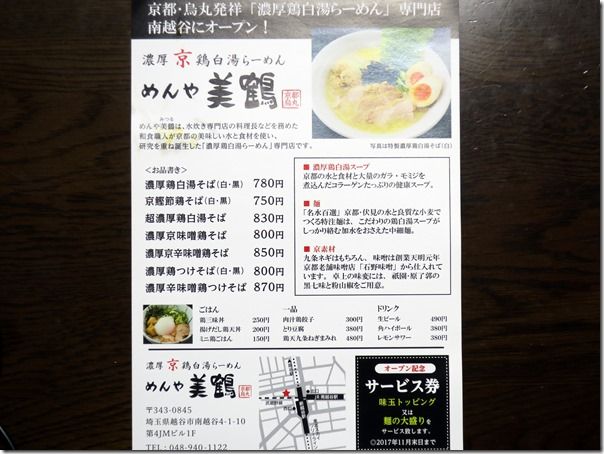 京都・烏丸発祥「濃厚鶏白湯らーめん」専門店
南越谷にオープン！
濃厚 京 鶏白湯らーめん
めんや 美鶴 京都烏丸
みつる
めんや美鶴は、水炊き専門店の料理長などを務めた
和食職人が京都の美味しい水と食材を使い、
研究を重ね誕生した「濃厚鶏白湯らーめん」専門店です。
写真は特製濃厚鶏白湯そば(白)
＜お品書き＞
濃厚鶏白湯そば(白・黒) 780円
京鰹節鶏そば(白・黒) 750円
超濃厚鶏白湯そば 830円
濃厚京味噌鶏そば 800円
濃厚京辛味噌鶏そば 850円
濃厚鶏つけそば(白・黒) 800円
濃厚辛味噌鶏つけそば 870円
■ 濃厚鶏白湯スープ
京都の水と食材と大量のガラ・モミジを
煮込んだコラーゲンたっぷりの健康スープ。
■ 麺
「名水百選」京都・伏見の水と良質な小麦で
つくる特注麺は、こだわりの鶏白湯スープが
しっかり絡む加水をおさえた中細麺。
■ 京素材
九条ネギはもちろん、味噌は創業天明元年
京都老舗味噌「石野味噌」から仕入れて
います。 卓上の味変には、祇園・原了郭の
黒七味と粉山椒をご用意。
ごはん
鶏三昧丼 250円
揚げだし鶏天丼 200円
ミニ鶏ごはん 150円
一品
肉汁鶏餃子 300円
とり豆腐 380円
鶏天九条ねぎまみれ 480円
ドリンク
生ビール 490円
角ハイボール 380円
レモンサワー 380円
濃厚 京 鶏白湯らーめん
めんや 美鶴 京都烏丸
〒343-0845
埼玉県越谷市南越谷4-1-10
第4JMビル1F
TEL：048-940-1122
武蔵野線
JR 南越谷駅
オープン記念
サービス券
味玉トッピング
又は
麺の大盛りを
サービス致します。
◎2017年11月末日まで